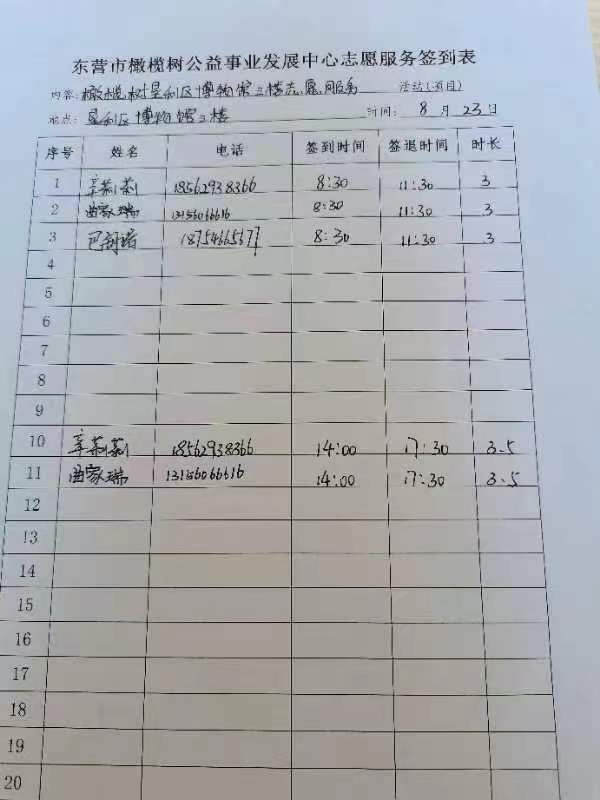 东营市橄榄树公益事业发展中心志愿服务签到表
内容: 橄榄树垦利区博物馆三楼志愿服务 活动(项目)
地点: 垦利区博物馆三楼 时间: 8 月 23 日
序号 姓名 电话 签到时间 签退时间 时长
1 辛莉莉 18562938366 8:30 11:30 3
2 曲家瑞 13156066616 8:30 11:30 3
3 8:30 11:30 3
4
5
6
7
8
9
10 辛莉莉 18562938366 14:00 17:30 3.5
11 曲家瑞 13156066616 14:00 17:30 3.5
12
13
14
15
16
17
18
19
20